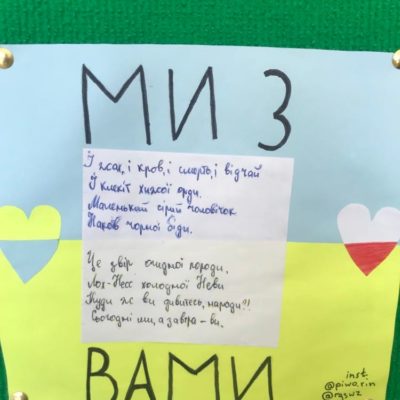 МИ З
І жах, і кров, і смерть, і відчай
І клекіт хижої орди.
Маленький сірий чоловічок
Накоїв чорної біди.
Це звір огидної породи,
Лох-Несс холодної Неви
Куди ж ви дивитесь, народи?!
Сьогодні ми, а завтра – ви.
ВАМИ
inst.
@piwo.rin